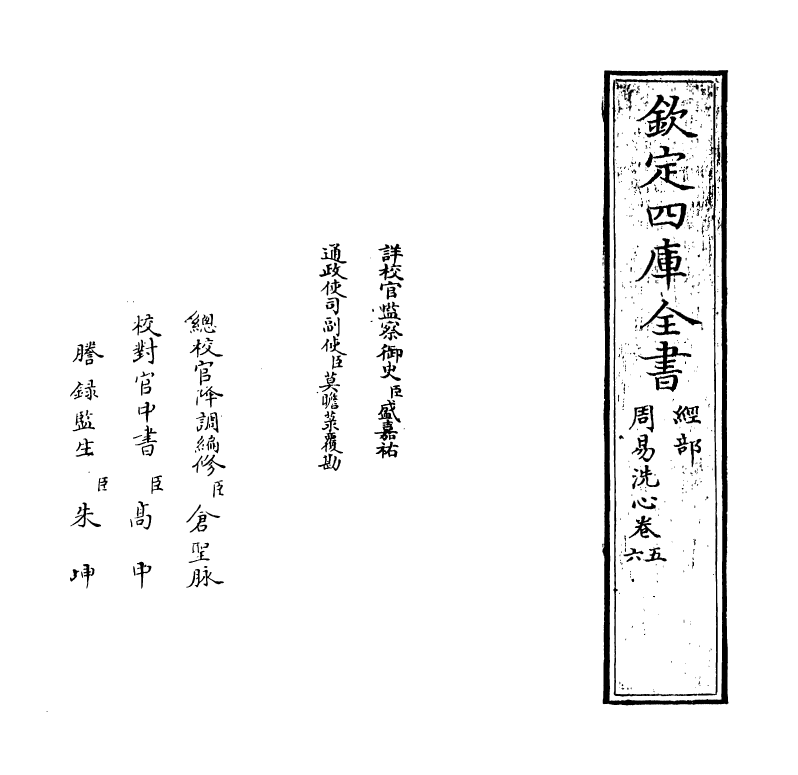 欽定四庫全書
經部
周易洗心卷五六
詳校官監察御史臣盛嘉祐
通政使司副使臣莫瞻菉覆勘
總校官降調編修臣倉聖脉
校對官中書臣高中
謄録監生臣朱坤